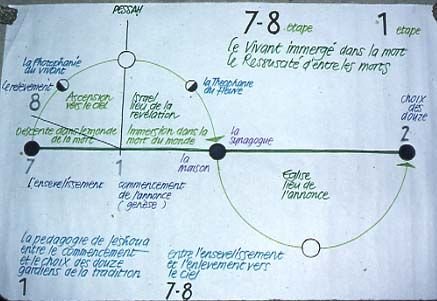 PESSAH
7-8 etape
1 etape
Le Vivant immergé dans la mort
Le Ressuscité d'entre les morts
la Photophanie
du vivant
Le relèvement
8
Ascension
vers le ciel
Israel
lieu de la
révélation
la Théophanie
du fleuve
choix
des
douze
2
Descente dans le monde
de la mort
Immersion dans la
mort du monde
la
synagogue
7
1
la
maison
L'ensevelissement
commencement
de l'annonce
(genèse)
Église
lieu de
l'annonce
la pedagogie de Jeshoua
entre le commencement
et le choix des douze
gardiens de la tradition
1
Entre l'ensevelissement
et l'enlevement vers
le ciel
7-8